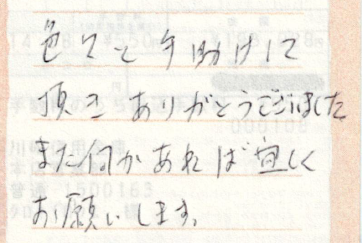 色々と手助けして
頂きありがとうございました
また何かあれば宜しく
お願いします。